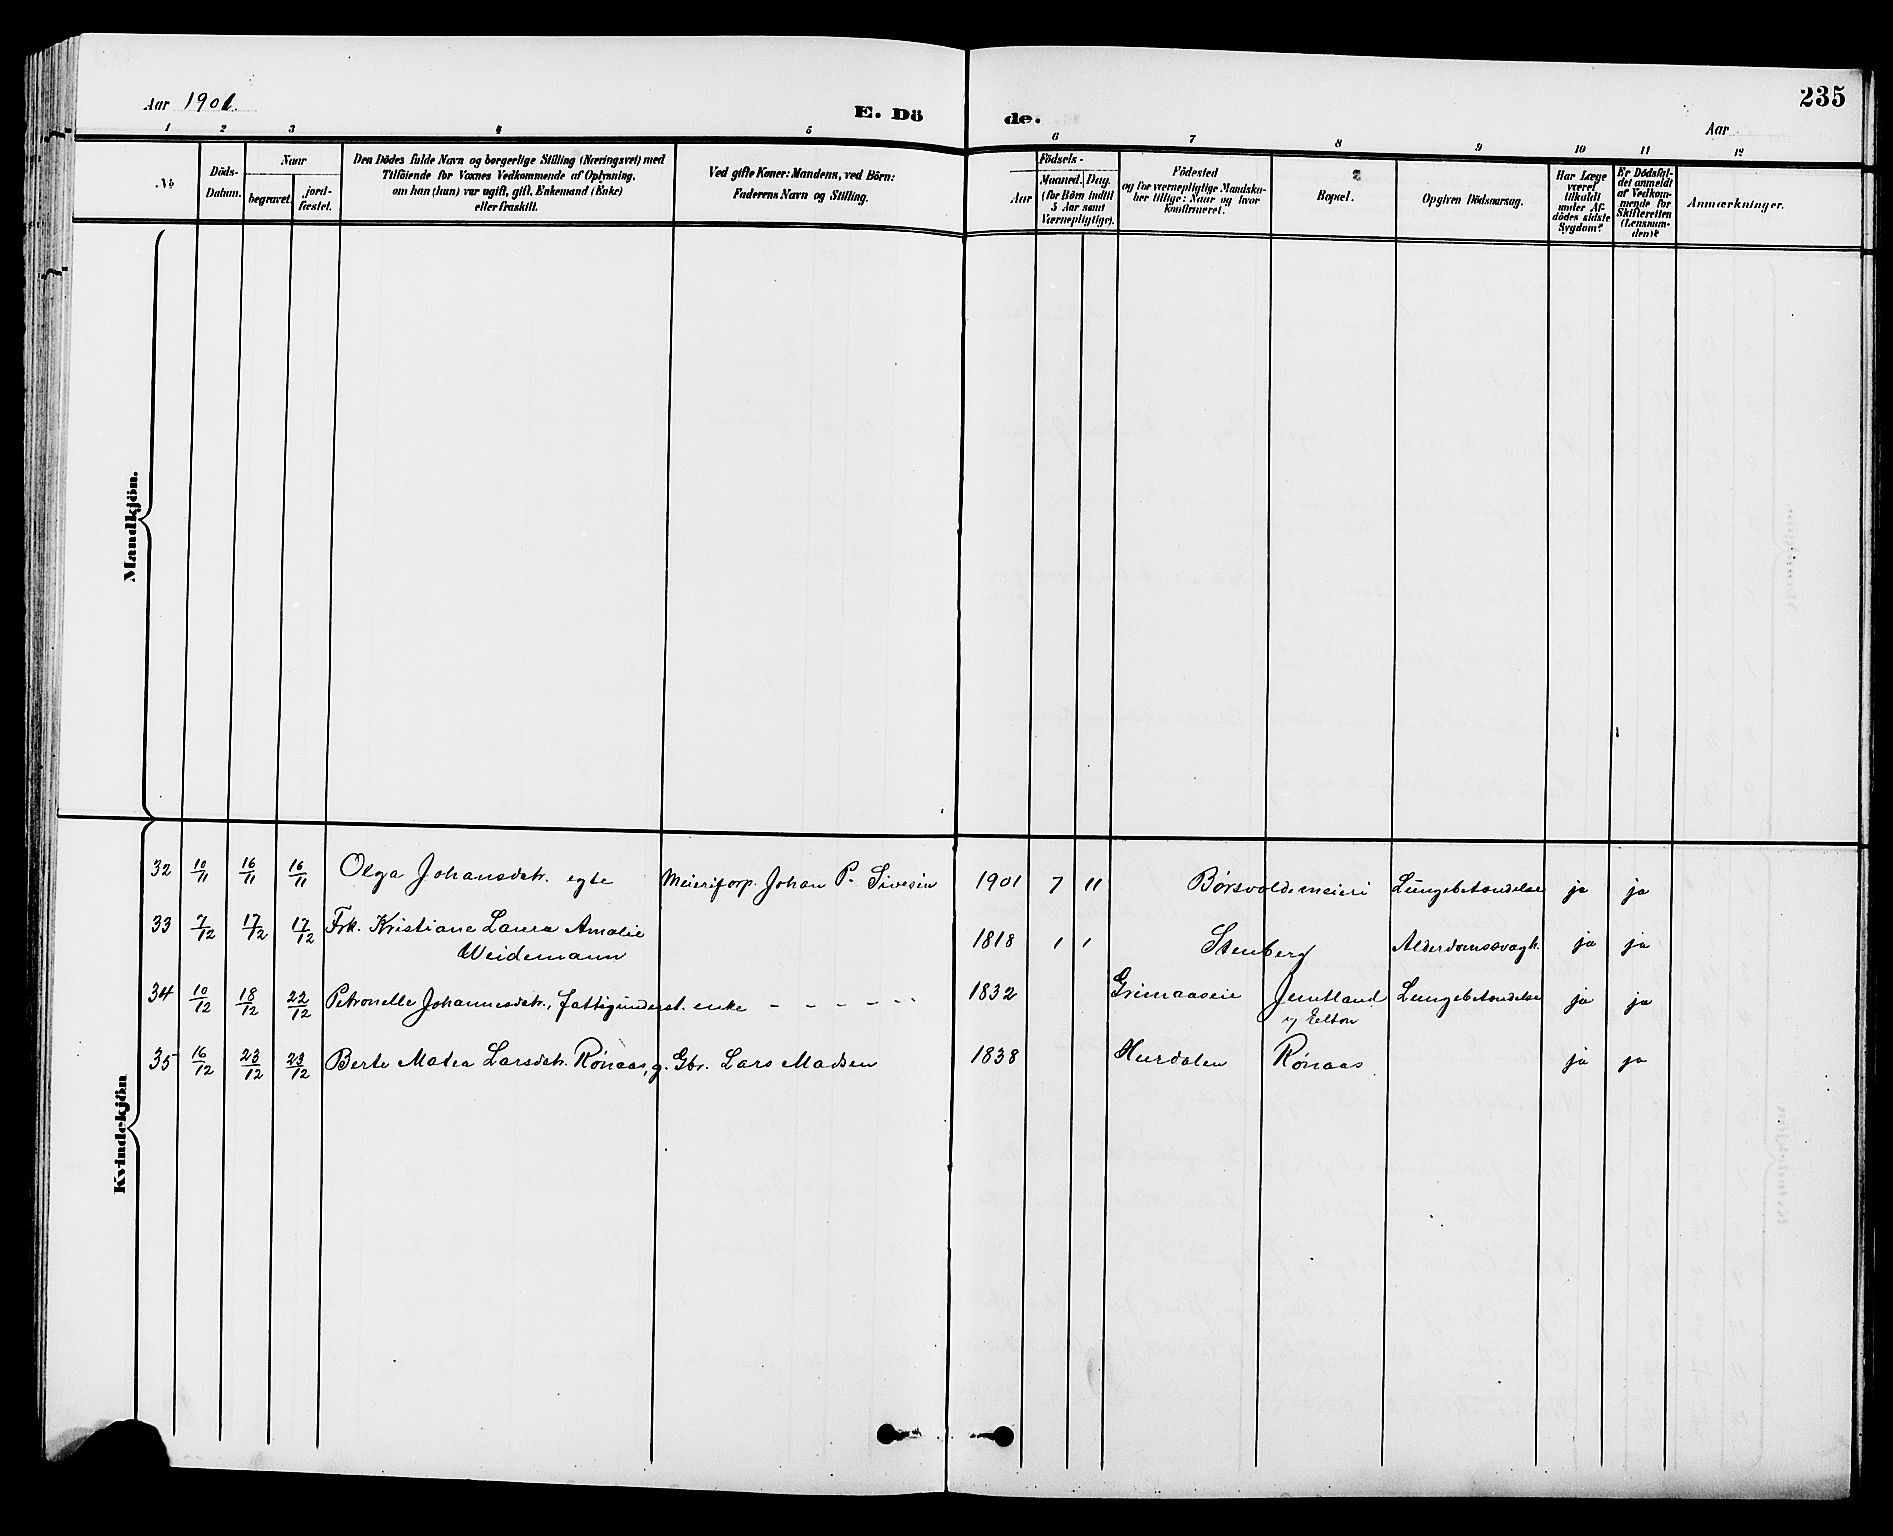 Aar 1901.
E. Dö de.
Aar
235
1 2 3 4 5 6 7 8 9 10 11 12
No
Döds-Datum.
Naar
begravet.
jord-fæstet.
Den Dödes fulde Navn og borgerlige Stilling (Næringsvei) med
Tilföiende for Voxnes Vedkommende af Oplysning,
om han (hun) var ugift, gift, Enkemand (Enke)
eller fraskilt.
Ved gifte Koner: Mandens, ved Börn:
Faderens Navn og Stilling.
Födsels-
Aar
Maaned. Dag.
(for Börn indtil
5 Aar samt
Værnepligtige).
Födested
og for værnepligtige Mandska-
ber tillige: Naar og hvor
konfirmeret.
Bopæl.
Opgiven Dödsaarsag.
Har Læge
været
tilkaldt
under Af-
dödes sidste
Sygdom?
Er Dödsfal-
det anmeldt
af Vedkom-
mende for
Skifteretten
(Lensman-
den)?
Anmærkninger.
Mandkjön.
Kvindekjön
32 10/11 16/11 16/11 Olga Johansdtr. egte Meieriforp. Johan P. Sivesin 1901 7 11 Børsvoldsmeieri Lungebetændelse ja ja
33 7/12 17/12 17/12 Frk. Kristiane Laura Amalie
Weidemann 1818 1 1 Stenberg Alderdomssvagh. ja ja
34 10/12 18/12 22/12 Petronelle Johannesdtr., fattigunderst. enke - - - - - - 1832 Grimaaseie Lungebetændelse ja ja
35 16/12 23/12 23/12 Berte Matea Larsdtr. Rønaas, g. Gbr. Lars Madsen 1838 Hurdalen Rønaas ja ja